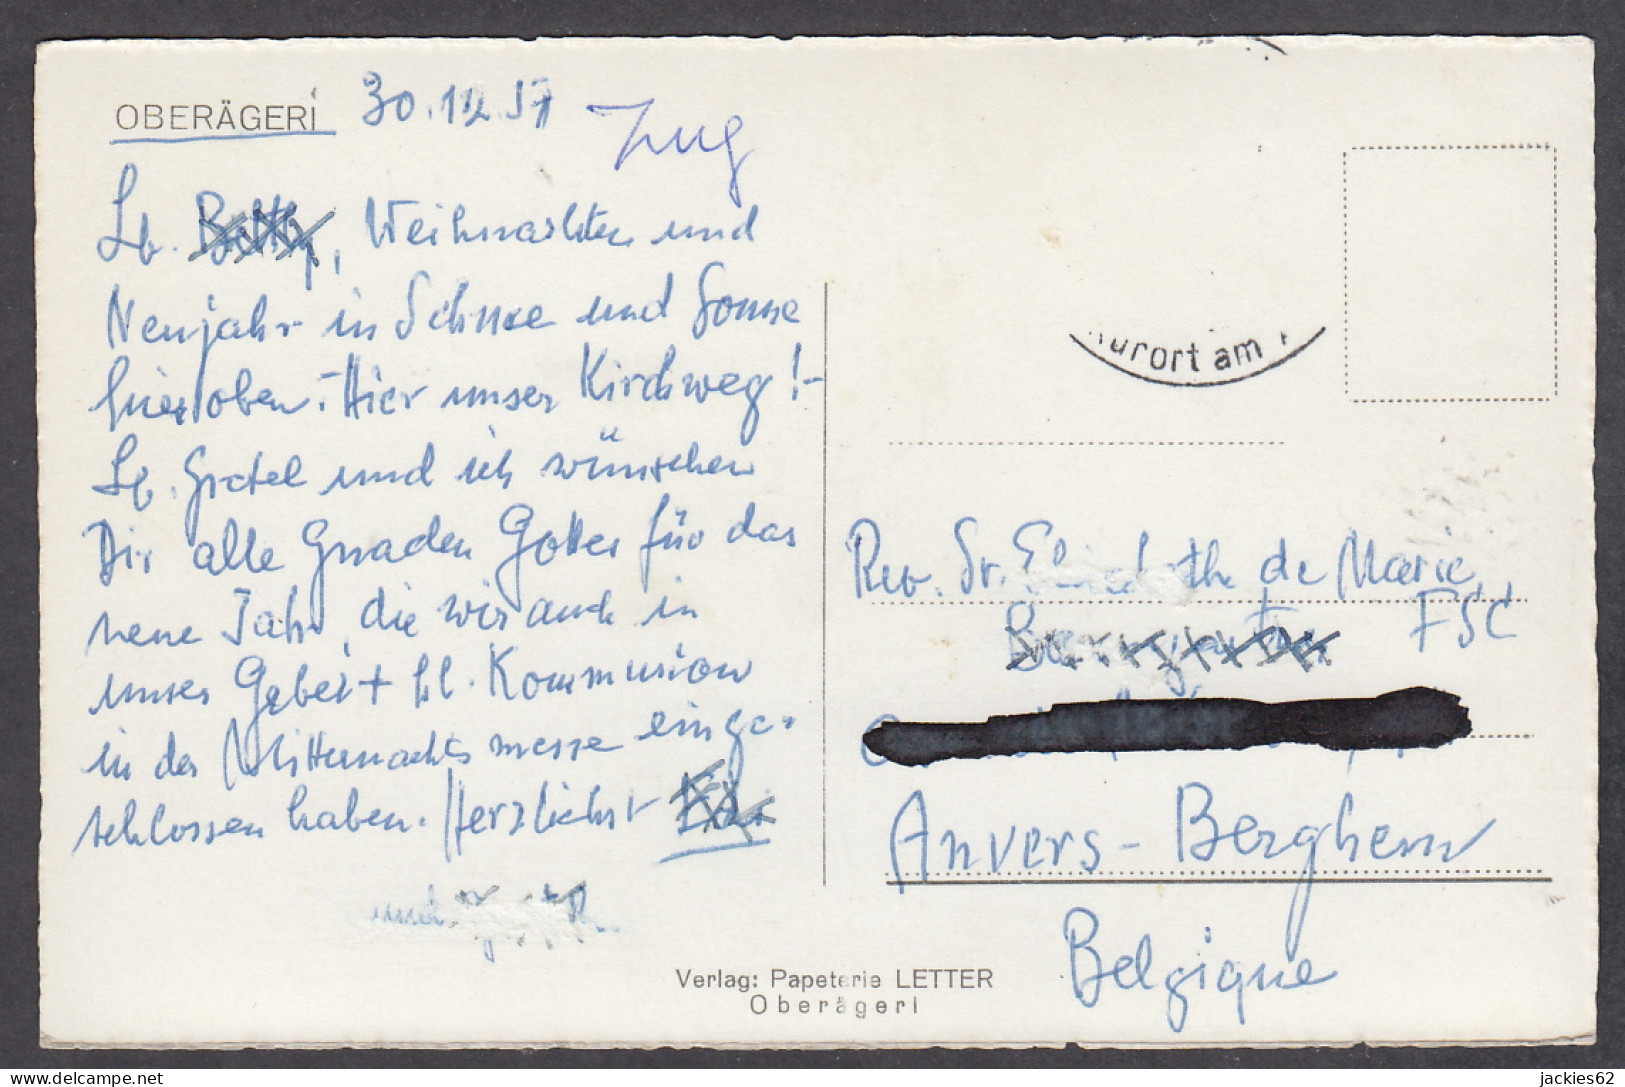 OBERÄGERI 30.12.57
Zug
Lb. Betty, Weihnachten und
Neujahr in Schnee und Sonne
hier oben. Hier unser Kirchweg!-
Lb. Gretel und ich wünschen
Dir alle Gnaden Gottes für das
neue Jahr, die wir auch in
unser Gebet + hl. Kommunion
in der Mitternachtsmesse einge-
schlossen haben. Herzlichst
und
Kurort am
Rev. Sr. Elisabeth de Marie
FSC
Anvers - Berghem
Belgique
Verlag: Papeterie LETTER
Oberägeri
jackies62